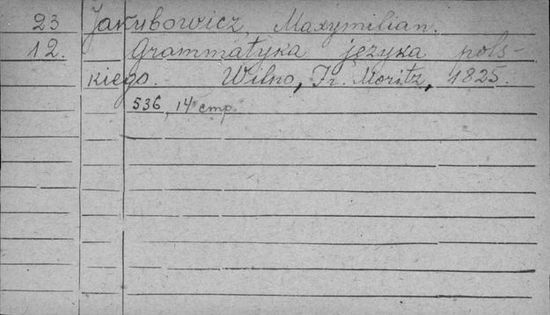 23 Jakubowicz, Maxymilian.
12. Grammatyka języka pols-
kiego. Wilno, Fr. Moritz, 1825.
536, 14 стр.